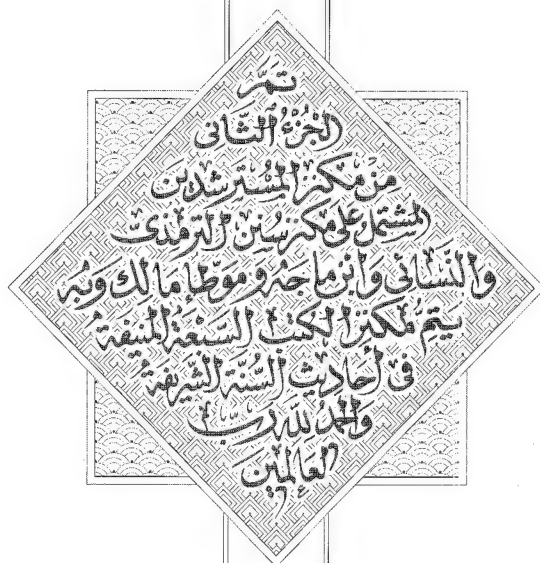 تمَّ
الجُزْءُ الثَّانى
مِنْ مكنز المُسْتَرشِدين
المشتمل على مكنز سُنن الترمذى
والنَّسَائى وَابْن مَاجَه وموطّإ مَالك وَبه
يتمُّ مكنز الكتب السَّبْعَة المنيفَة
فى أحَاديث السُّنَّة الشّريفَة
والحمدُ للّه رَبّ
العَالمينَ